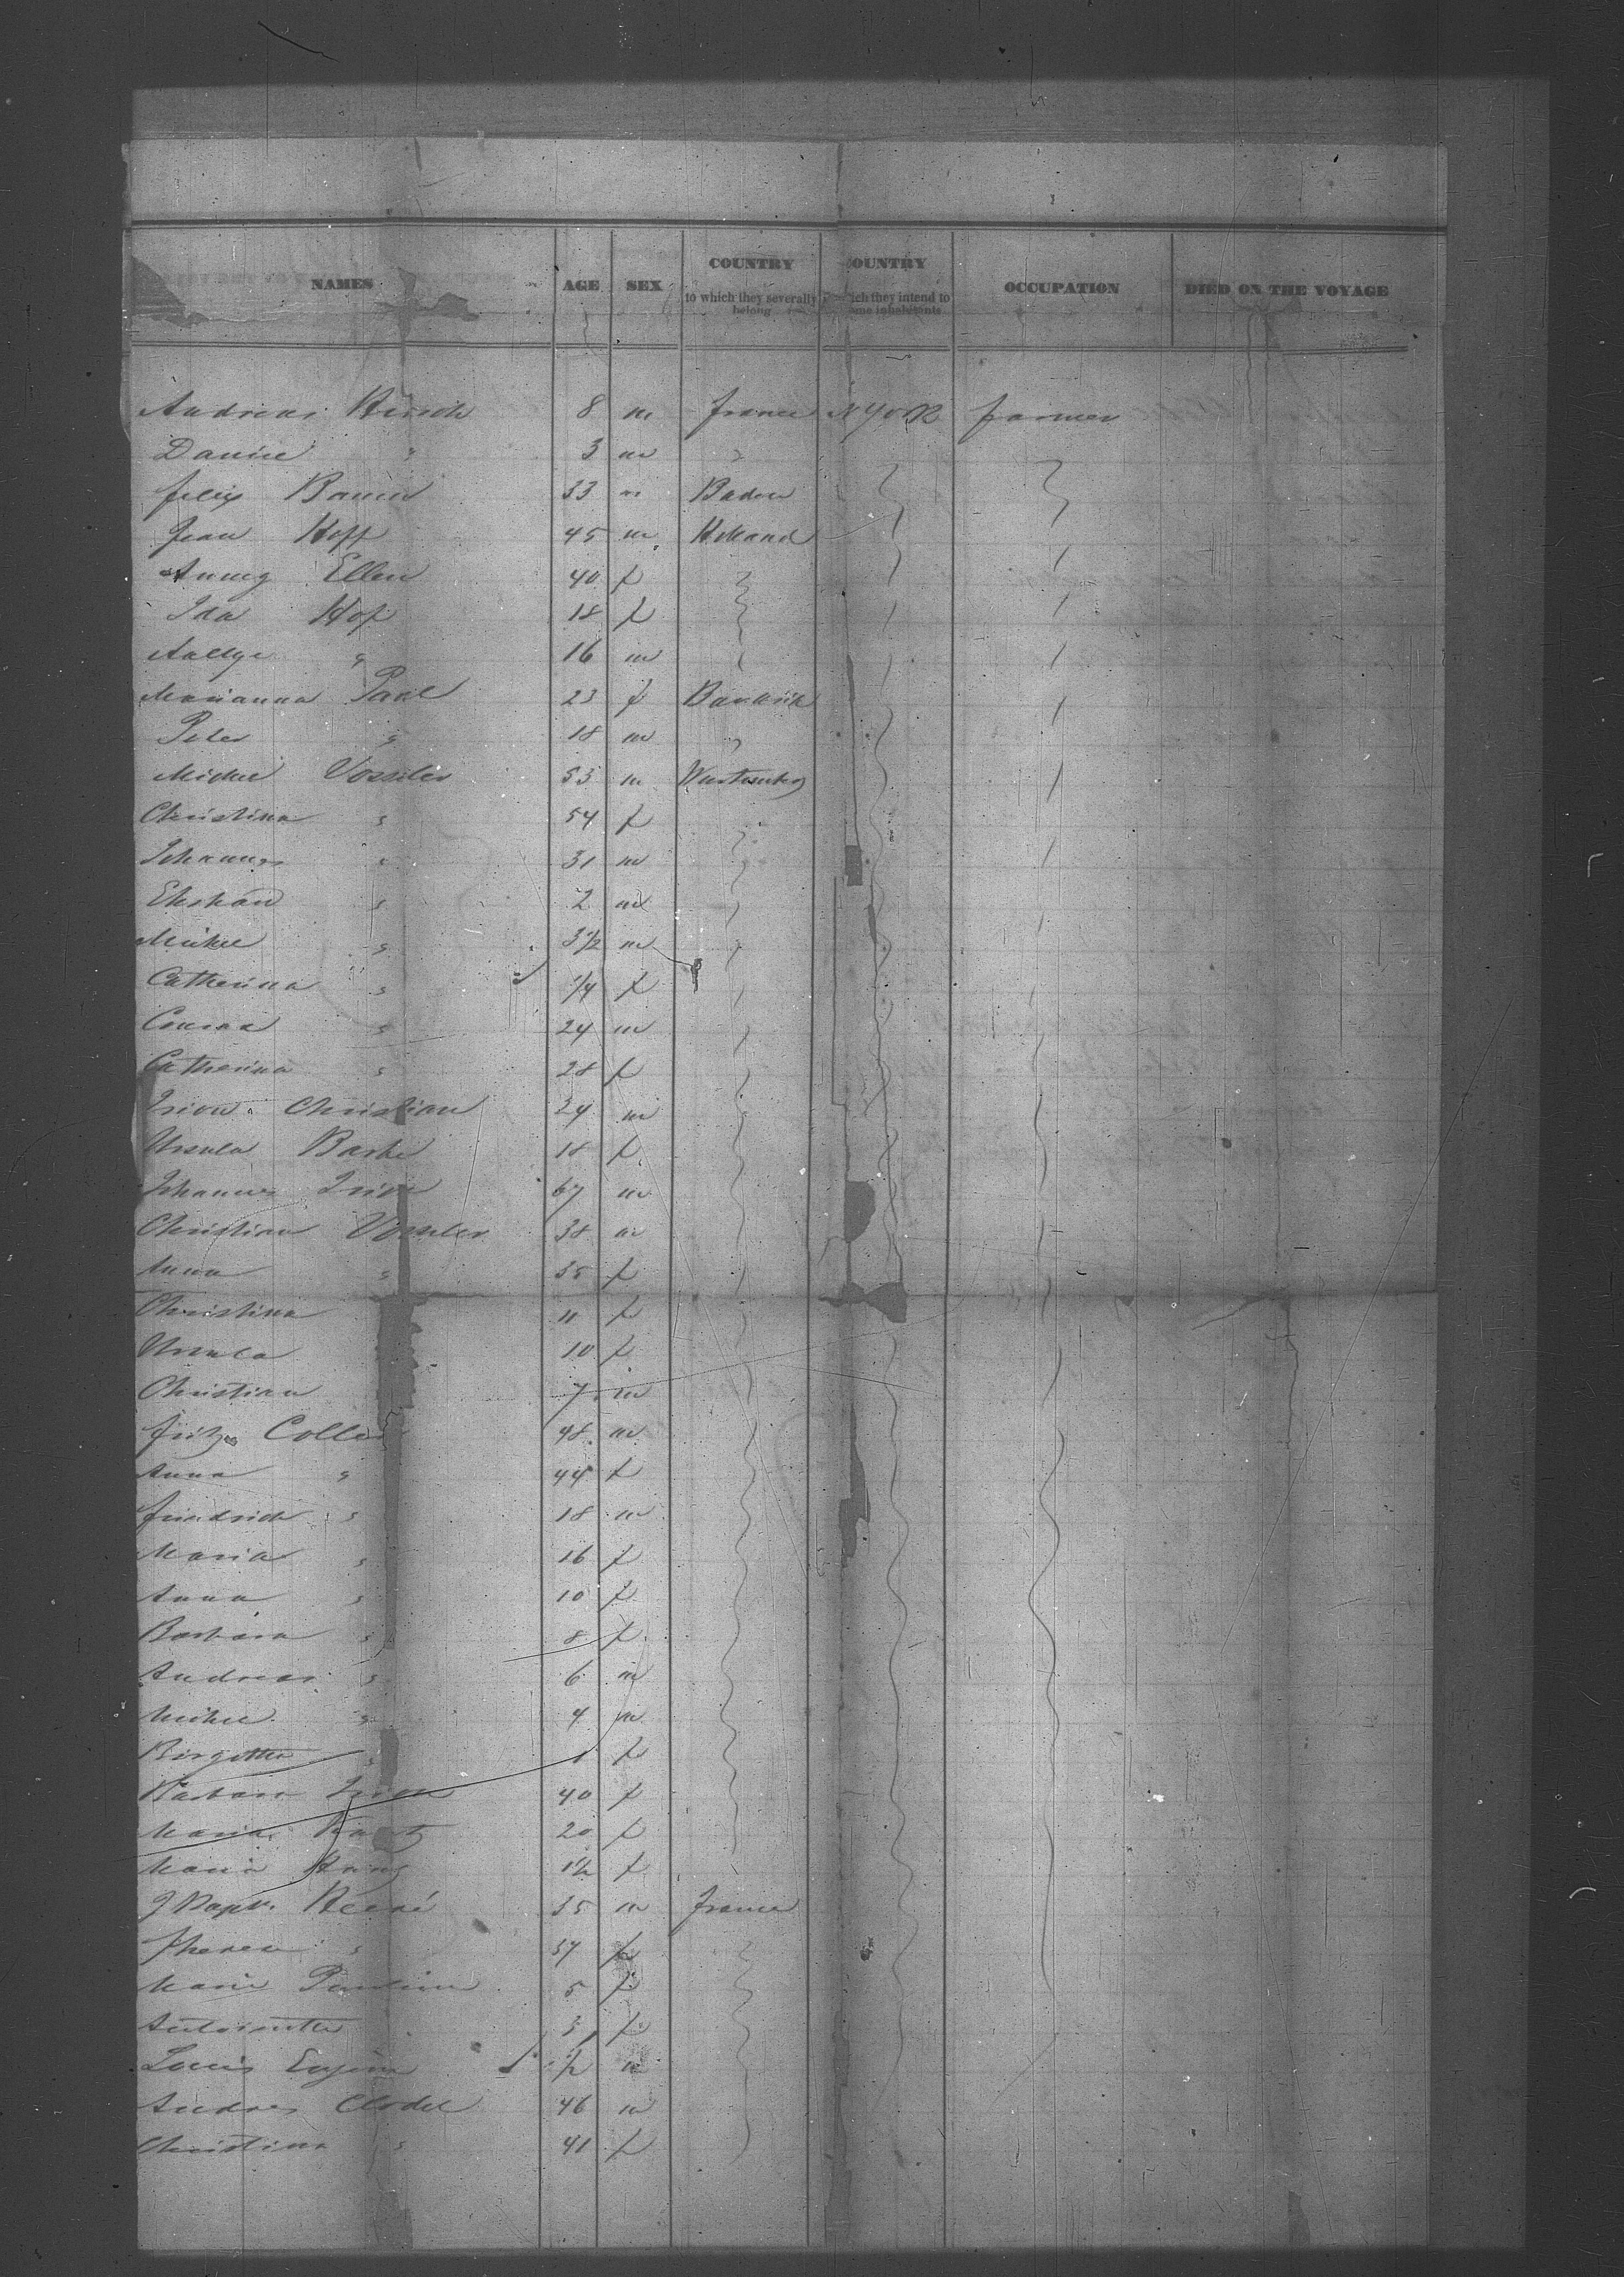 NAMES AGE SEX COUNTRY to which they severally belong COUNTRY which they intend to inhabitants OCCUPATION DIED ON THE VOYAGE
Andreas Hirsch 8 m france N York farmer
Daniel " 3 m "
felix 33 m Baden
Jean Hoff 45 m Holland
Ellen 40 f
Ida Hof 18 f
" 16 m
Marianna Paul 23 f
Peter " 18 m "
Michel Vossler 53 m Wurtemberg
Christina " 54 f
Johannes " 31 m
" 2 m
Michel " 3 1/2 m
Catherina " 1/4 f
Conrad " 24 m
Catherina " 28 f
Irion Christian 24 m
Ursula 18 f
Johannes Irion 67 m
Christian Vossler 38 m
Anna " 35 f
Christina 11 f
Ursula 10 f
Christian 7 m
fritz Collin 48 m
Anna " 44 f
friedrich " 18 m
Maria " 16 f
Anna " 10 f
Barbara " 8 f
Andreas " 6 m
Michel " 4 m
" 1 f
Barbara Irion 40 f
Maria 20 f
Maria 1 1/2 f
J Bapt. 35 m france
Therese " 37 f
Marie Pauline 5 f
Antoinette 3 f
Louis Eugene 1/2 m
Andres Clodel 46 m
Christina " 41 f